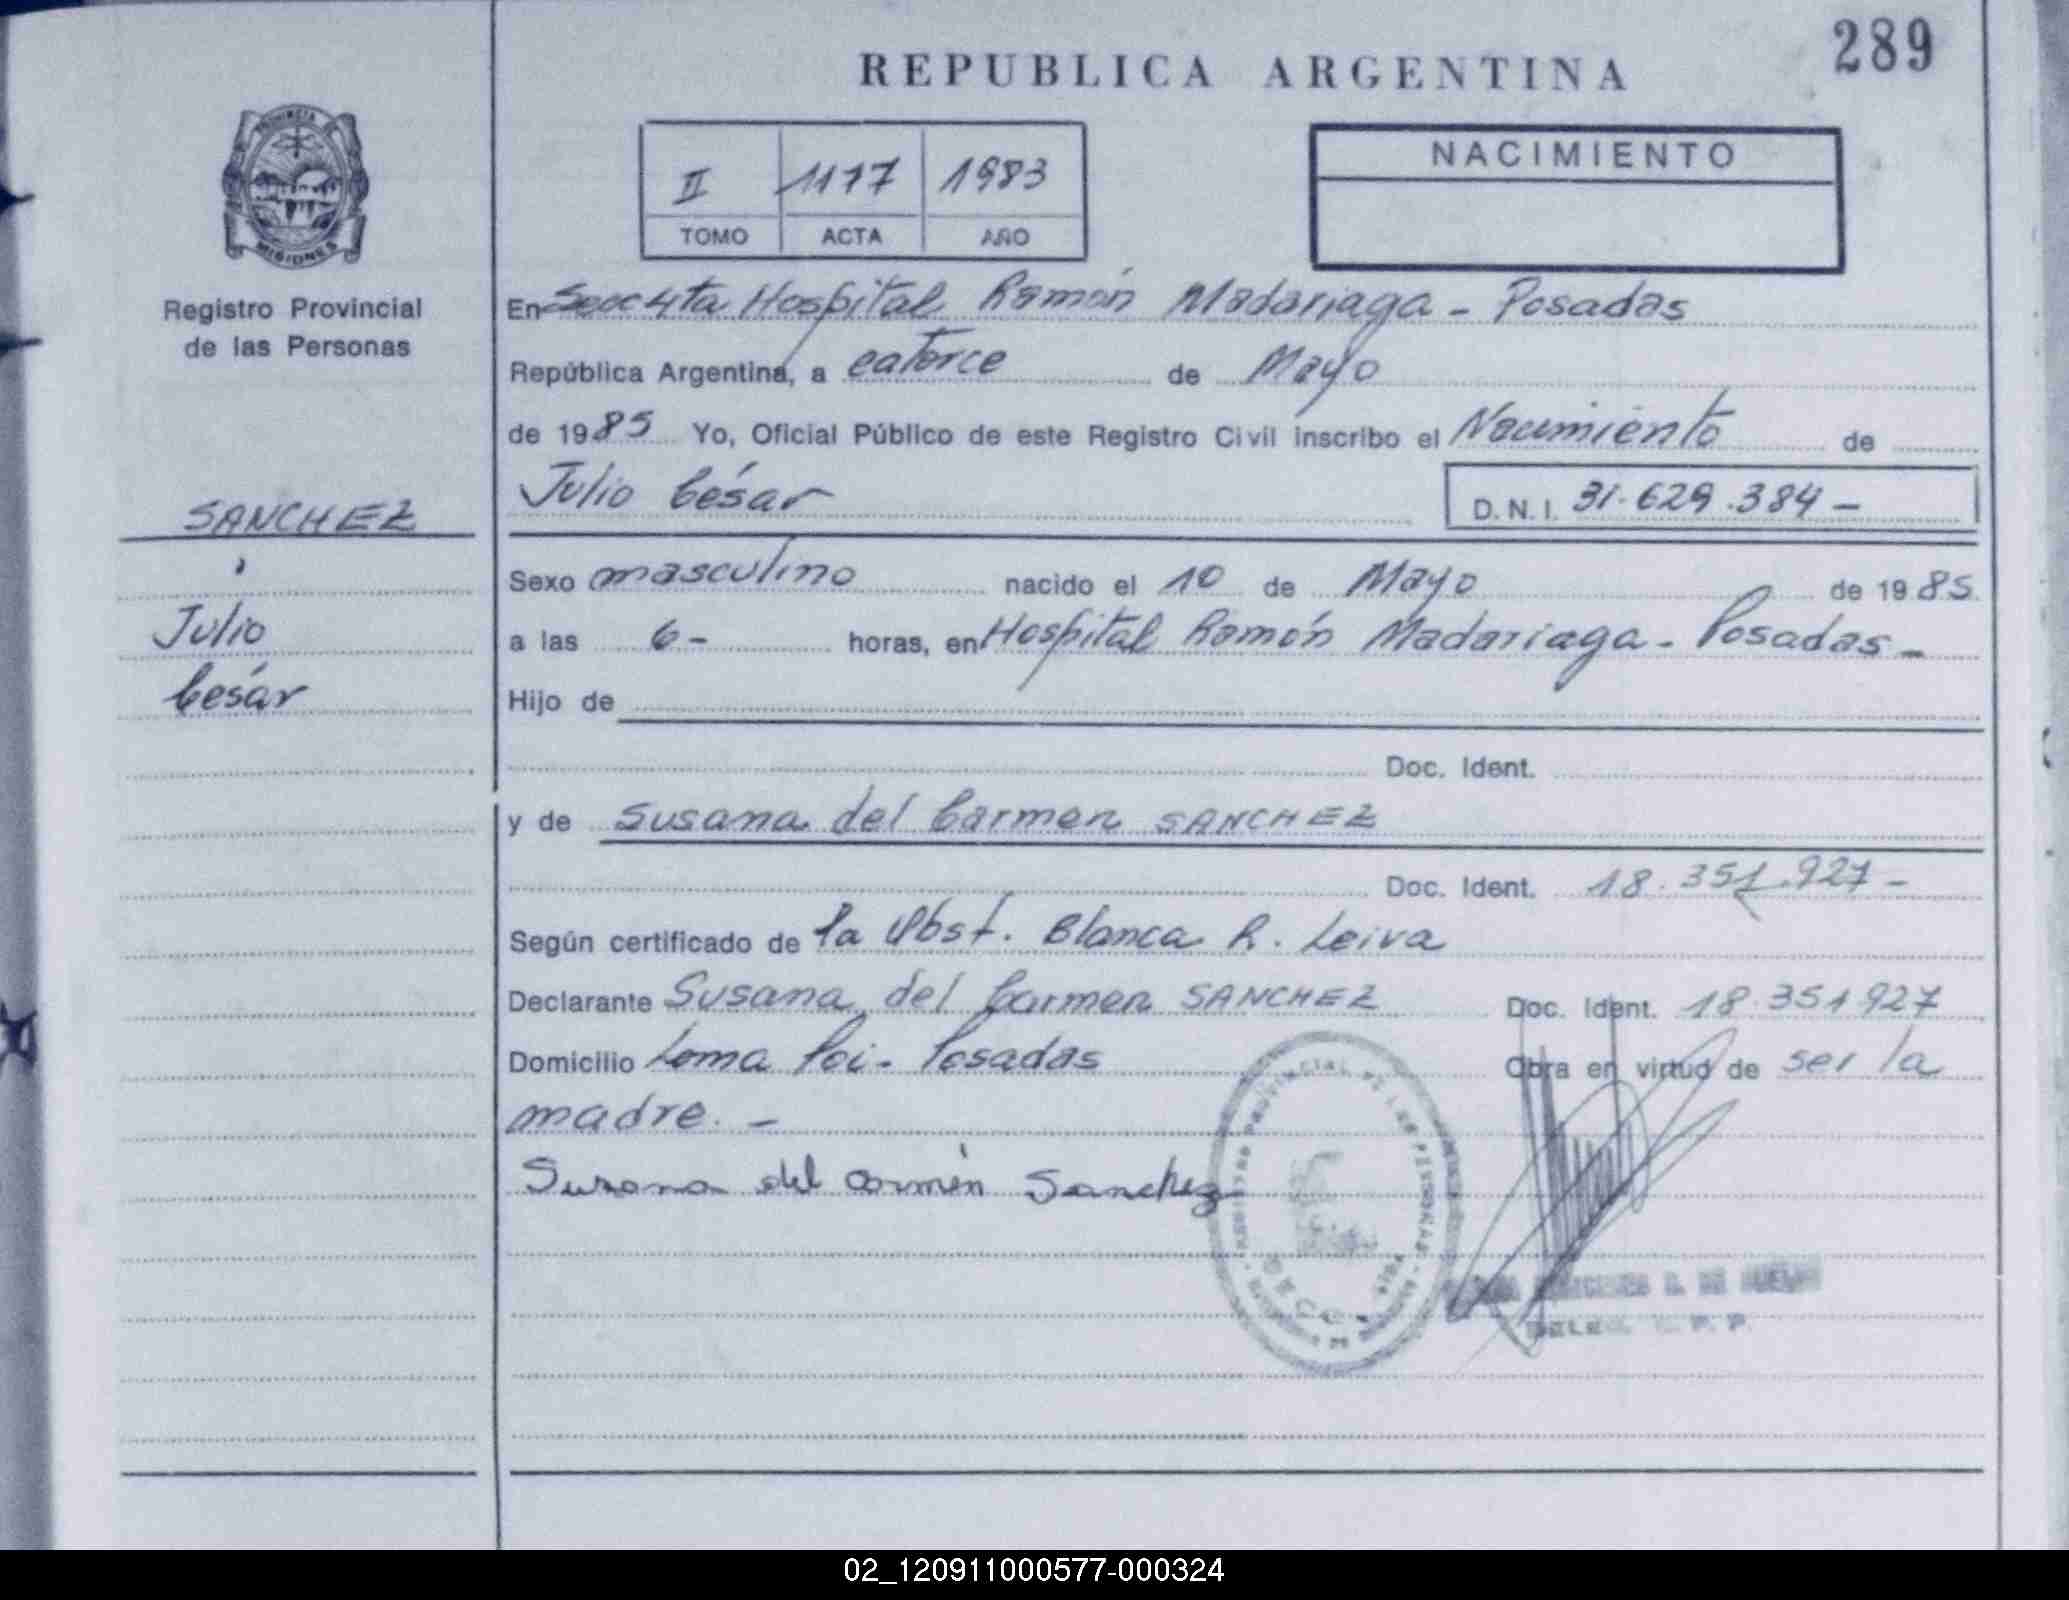 289
REPUBLICA ARGENTINA
PROVINCIA DE
MISIONES
Registro Provincial
de las Personas
II 1177 1983
TOMO ACTA AÑO
NACIMIENTO
En Secc 4ta Hospital Ramón Madariaga - Posadas
República Argentina, a catorce de Mayo
de 1985 Yo, Oficial Público de este Registro Civil inscribo el Nacimiento de
Julio César
D.N.I. 31.629.384 -
SANCHEZ
Julio
César
Sexo masculino nacido el 10 de Mayo de 1985.
a las 6 - horas, en Hospital Ramón Madariaga - Posadas -
Hijo de
Doc. Ident.
y de Susana del Carmen SANCHEZ
Doc. Ident. 18.351.927 -
Según certificado de la Obst. Blanca R. Leiva
Declarante Susana del Carmen SANCHEZ Doc. Ident. 18.351927
Domicilio Loma Poi - Posadas Obra en virtud de ser la
madre. -
Susana del Carmén Sanchez
REGISTRO PROVINCIAL DE LAS PERSONAS
02_120911000577-000324